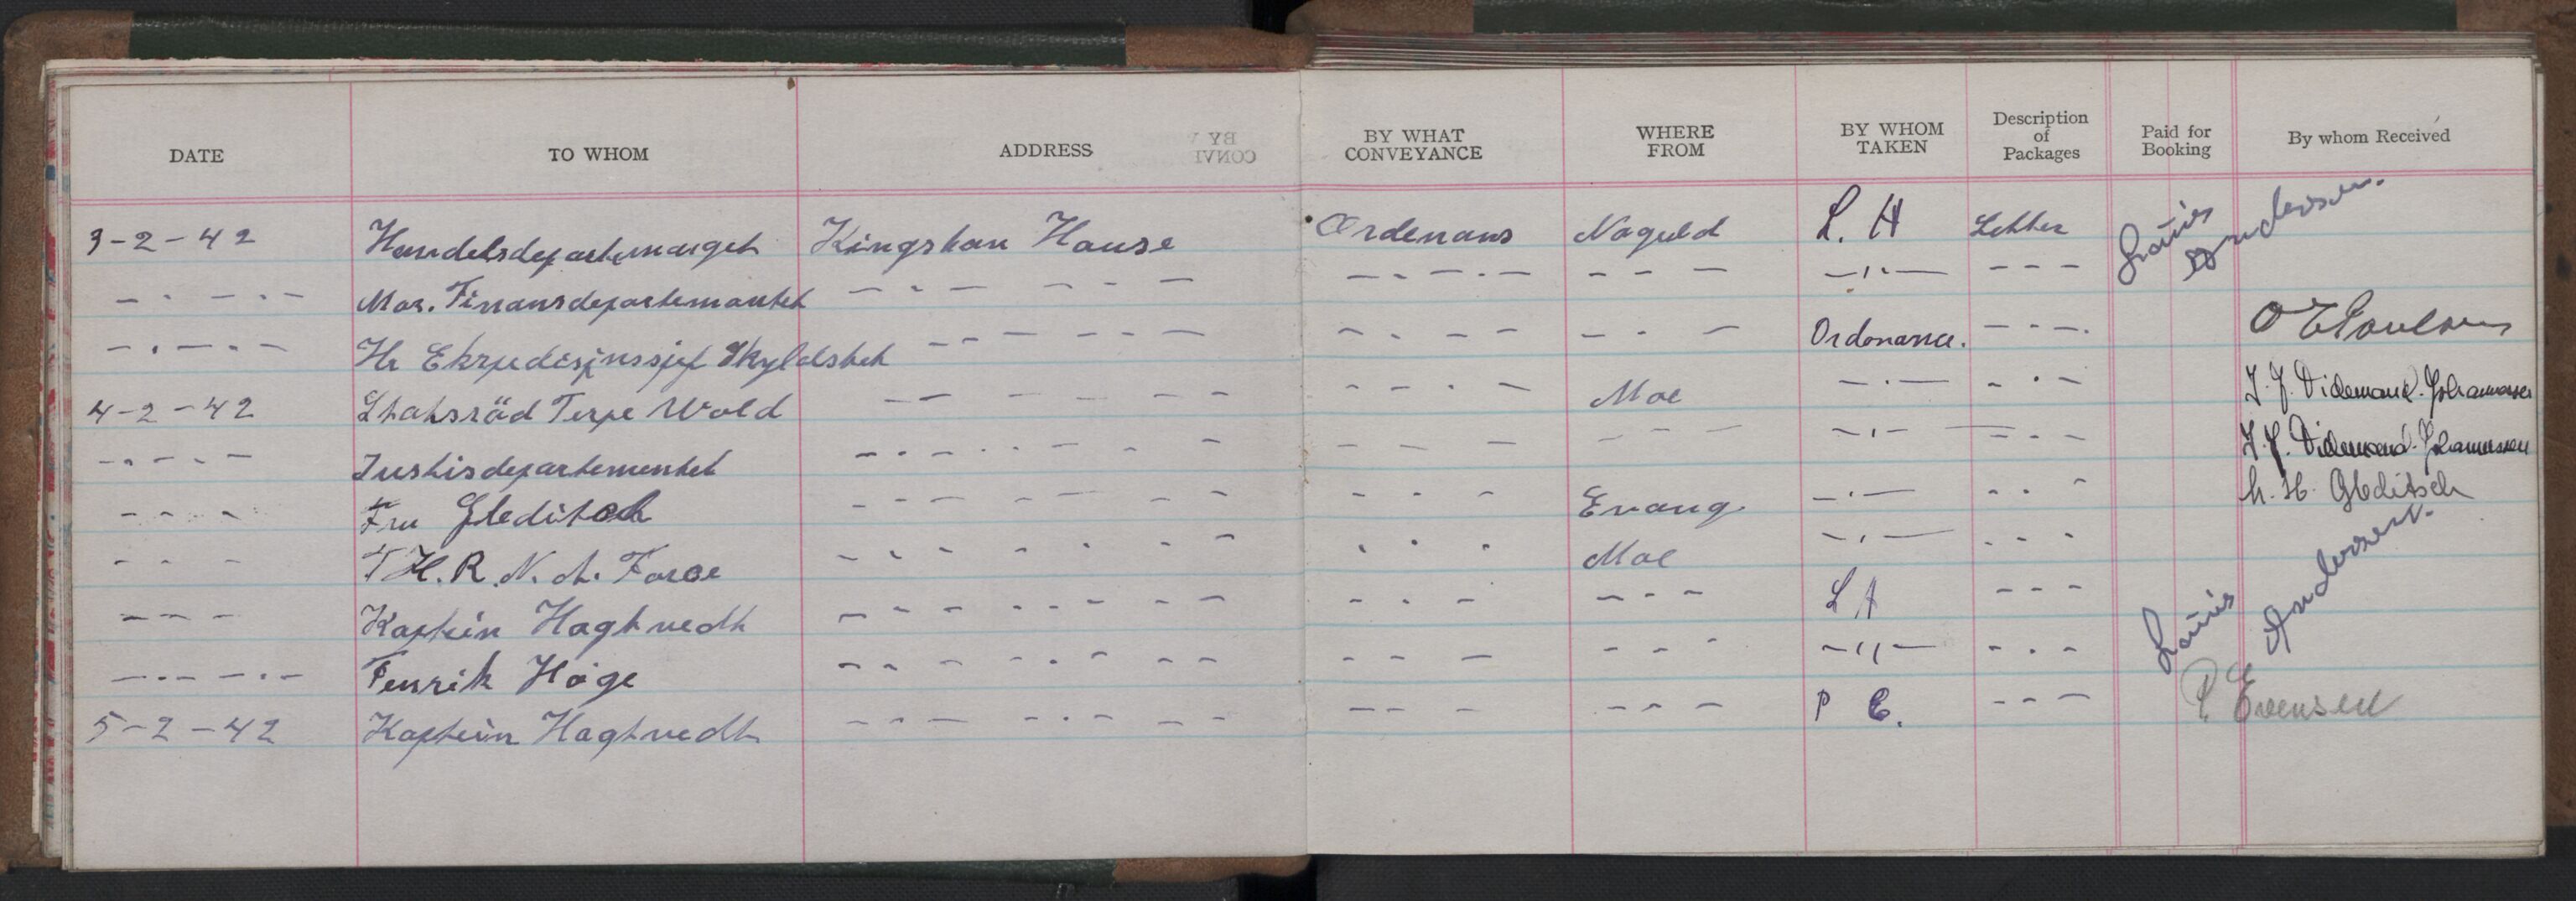 DATE TO WHOM ADDRESS BY WHAT CONVEYANCE WHERE FROM BY WHOM TAKEN Description of Packages Paid for Booking By whom Received
3-2-42 Handelsdepartemanget Kingston House Ordenans Naguld L. H Letter Louis Andersen.
— · — · — Mar. Finansdepartemantet — - — - — - — — - — · — — — — — ı · — — — —
— · — · — Hr Ekspedisjonssjef Skyldstad — - — - — - — — · — — — · — Ordonance. — · — · O E Paulsen
4-2-42 Statsråd Terje Wold — — - — - — — - — · — Moe — · — — · — J. J. Videmand. Johannessen
— · — · — Justisdepartementet — · — · — · — — — — — — — — ı — — · — J. J. Videmand. Johannessen
- - - - Fru Gleditsch — - — — — - — — - — Evang — · — - · - h. H. Gleditsch
- - - T H. R. N. A. Force — - — · — · — · · · Moe — ı — - - -
- - - Kaptein Hagtvedt — - — · — - — — - — — - — L A - - - Louis Andersen.
— · — · — Fenrik Høge — - — · — - — — — — — - - — ıı — - · -
5-2-42 Kaptein Hagtvedt — - — · — - — — — — — - — P E. - - — P Evensen